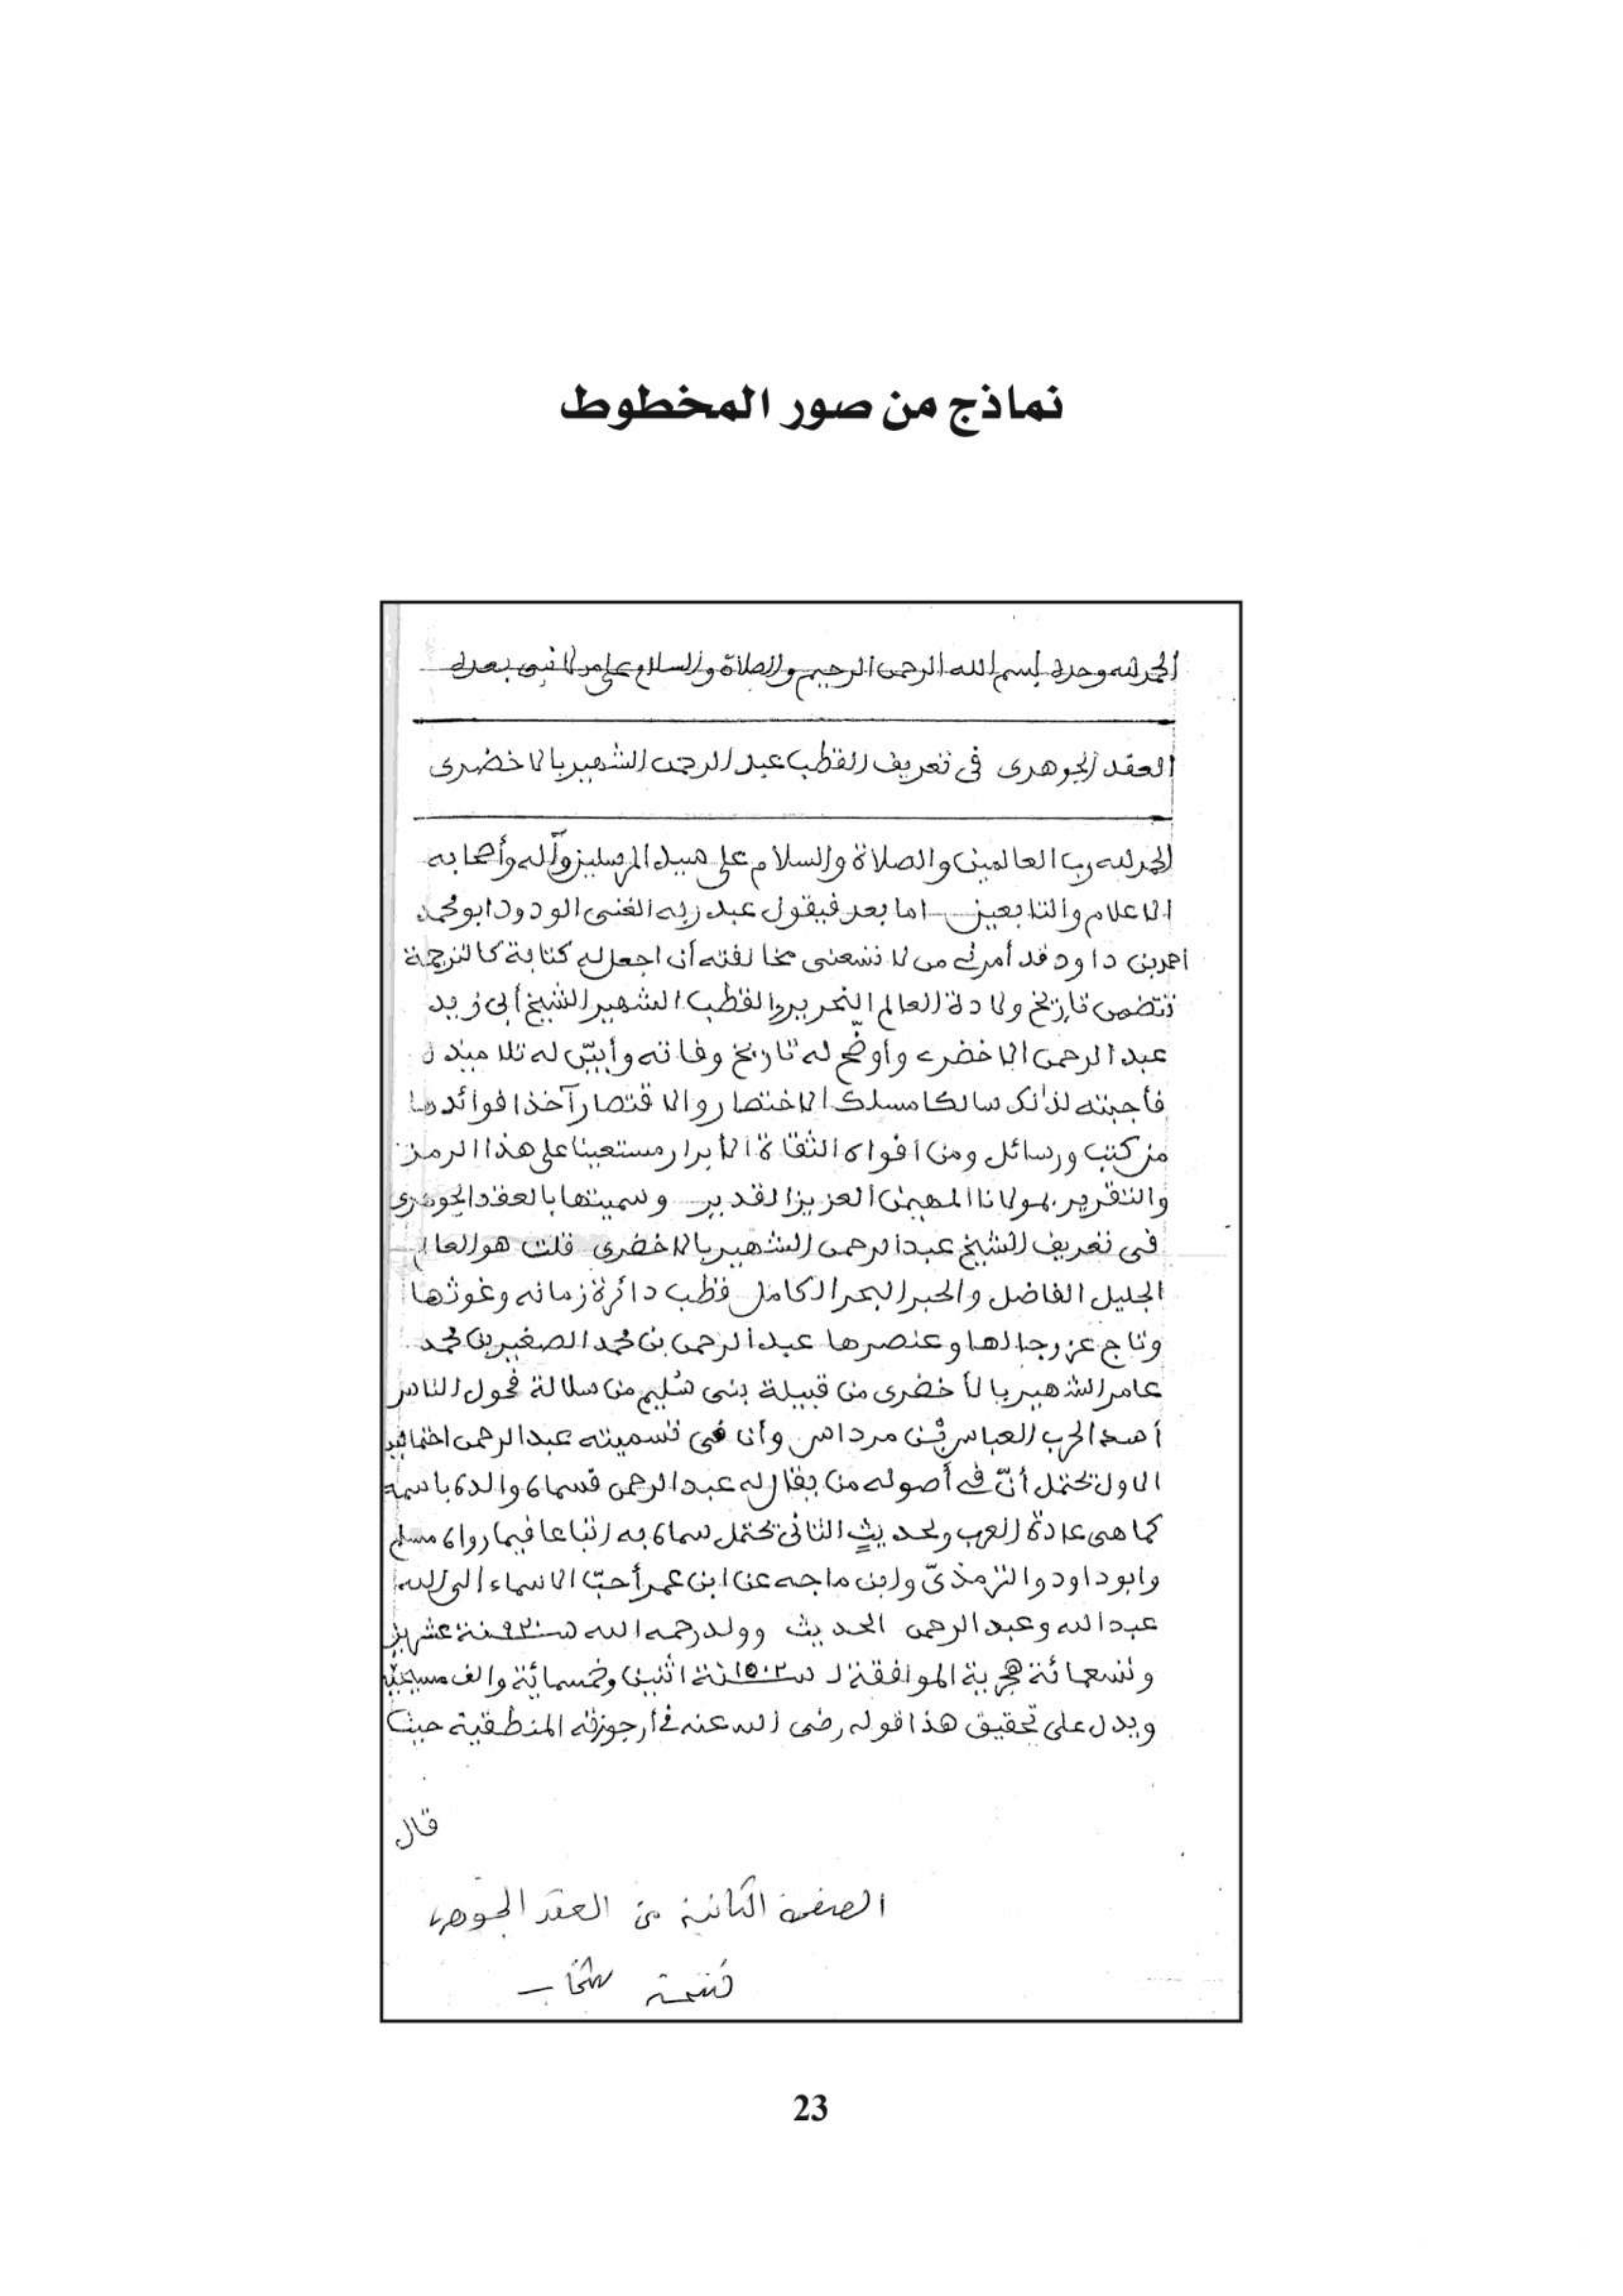 نماذج من صور المخطوط
الحمد لله وحده بسم الله الرحمن الرحيم والصلاة والسلام على من لا نبي بعده
العقد الجوهرى فى تعريف القطب عبد الرحمن الشهير بالاخضرى
الحمد لله رب العالمين والصلاة والسلام على سيد المرسلين وآله وأصحابه
الاعلام والتابعين اما بعد فيقول عبد ربه الغنى الودود ابو محمد
احمد بن داود قد أمرنى من لا تسعنى مخالفته أن اجعل له كتابة كالترجمة
تتضمن تاريخ ولادة العالم النحرير والقطب الشهير الشيخ أبى زيد
عبد الرحمن الاخضرى وأوضح له تاريخ وفاته وأبيّن له تلاميذه
فأجبته لذلك سالكا مسلك الاختصار والاقتصار آخذا فوائدها
من كتب ورسائل ومن افواه الثقاة الأبرار مستعينا على هذا الرمز
والتقرير بمولانا المهيمن العزيز القدير وسميتها بالعقد الجوهرى
فى تعريف الشيخ عبد الرحمن الشهير بالاخضرى قلت هو العالم
الجليل الفاضل والحبر البحر الكامل قطب دائرة زمانه وغوثها
وتاج عز رجالها وعنصرها عبد الرحمن بن محمد الصغير بن محمد
عامر الشهير بالأخضرى من قبيلة بنى سُليم من سلالة فحول الناس
أسد الحرب العباس بن مرداس وأن فى تسميته عبد الرحمن احتمالين
الاول تحتمل أنّ فى أصوله من يقال له عبد الرحمن فسماه والده باسمه
كما هى عادة العرب ولحديثٍ الثانى تحتمل سماه به اتباعا فيما رواه مسلم
وابو داود والترمذىّ وابن ماجه عن ابن عمر أحبّ الاسماء الى الله
عبد الله وعبد الرحمن الحديث وولد رحمه الله سنة ٩٢٠ سنة عشرين
وتسعمائة هجرية الموافقة لـ سنة ١٥٠٢ سنة اثنين وخمسمائة والف مسيحية
ويدل على تحقيق هذا قوله رضى الله عنه فى أرجوزته المنطقية حيث
قال
الصفحة الثانية من العقد الجوهرى